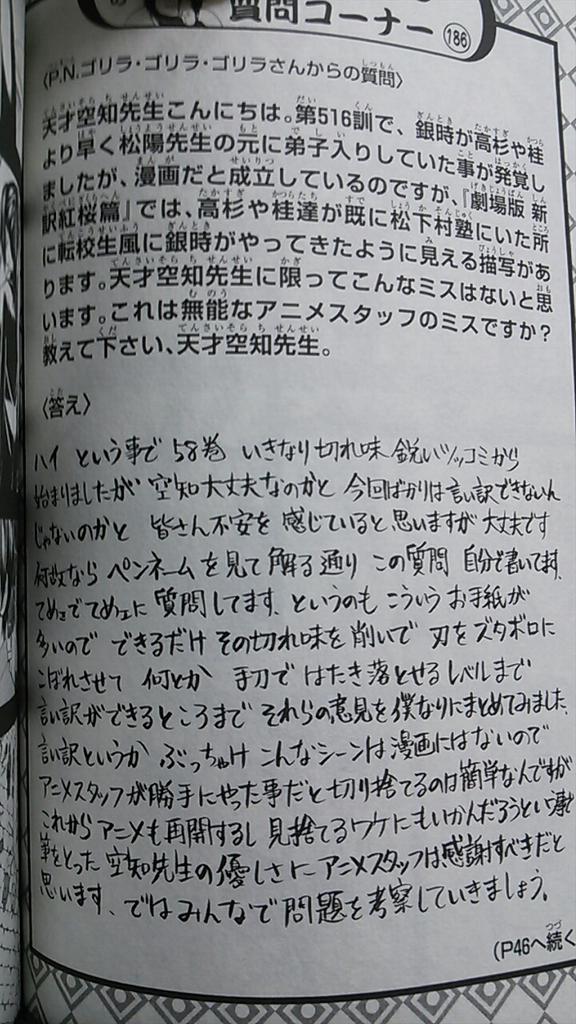 質問コーナー 186
〈P.N.ゴリラ・ゴリラ・ゴリラさんからの質問〉
天才空知先生こんにちは。第516訓で、銀時が高杉や桂
より早く松陽先生の元に弟子入りしていた事が発覚し
ましたが、漫画だと成立しているのですが、『劇場版 新
訳紅桜篇』では、高杉や桂達が既に松下村塾にいた所
に転校生風に銀時がやってきたように見える描写があ
ります。天才空知先生に限ってこんなミスはないと思
います。これは無能なアニメスタッフのミスですか?
教えて下さい、天才空知先生。
〈答え〉
ハイ という事で 58巻 いきなり切れ味 鋭いツッコミから
始まりましたが 空知大丈夫なのかと 今回ばかりは言い訳できないん
じゃないのかと 皆さん不安を 感じていると思いますが 大丈夫です
何故なら ペンネームを見て解る通り この質問 自分で書いてます。
てめェでてめェに質問してます、というのも こういう お手紙が
多いので できるだけ その切れ味を削いで 刃をズタボロに
こぼれさせて 何とか 手刀で はたき落とせるレベルまで
言い訳ができるところまで それらの意見を僕なりにまとめてみました。
言い訳というか ぶっちゃけ こんなシーンは漫画にはないので
アニメスタッフが勝手にやった事だと切り捨てるのは簡単なんですが
これからアニメも再開するし 見捨てるワケにもいかんだろうという事で
筆をとった 空知先生の優しさに アニメスタッフは感謝すべきだと
思います、ではみんなで問題を考察していきましょう。
(P46へ続く